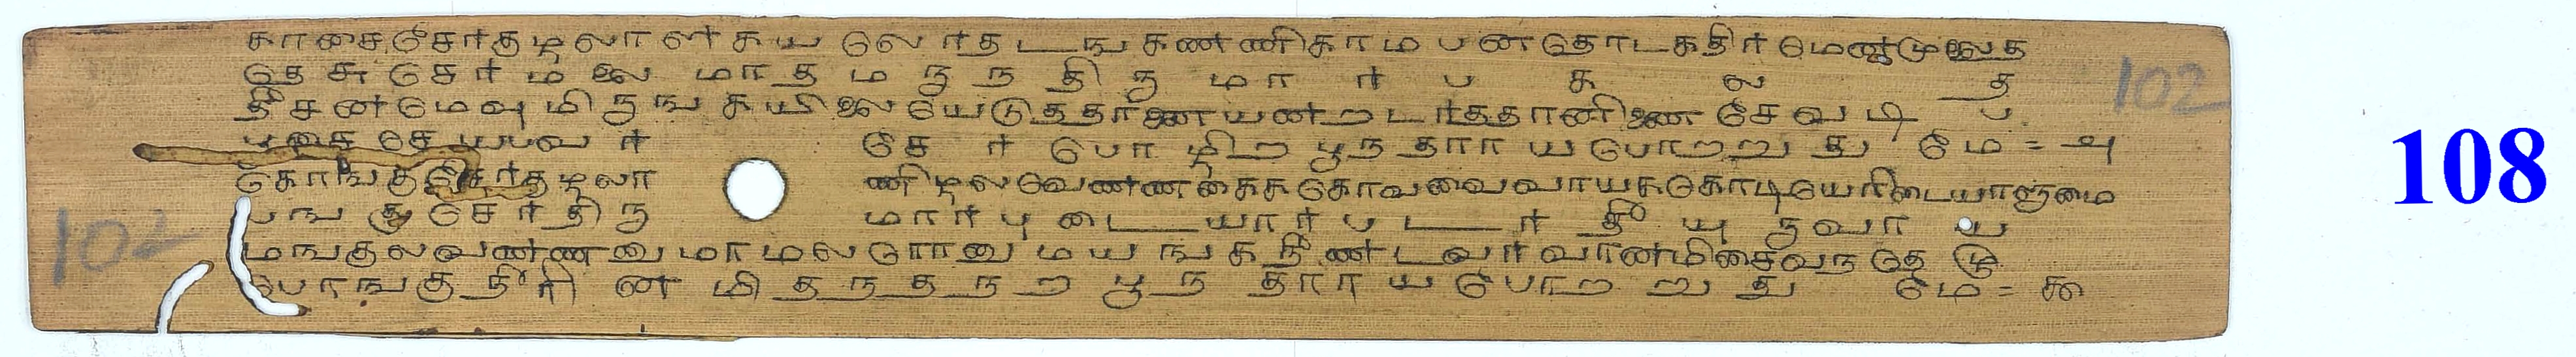 காசைசேர்குழலாள்கயலேர்தடங்கண்ணிகாம்பன்தோடகதிர்மென்முலைத
தேசுசேர்மலைமாதமருந்திருமார்பகலத
தீசன்மேவுமிருங்கயிலையெடுத்தானையன்றடர்த்தானிணைசேவடிப
பூசைசெய்பவர் சேர்பொழிற்பூந்தராய்போற்றுதுமே = அ
கொங்குசேர்குழலா ணிழல்வெண்ணகைகொவ்வைவாய்கொடியேரிடையாளுமை
பங்குசேர்திரு மார்புடையார்படர்தீயுருவாய
மங்குல்வண்ணனுமாமலரோனுமயங்கநீண்டவர்வான்மிசைவந்தெழு
பொங்குநீரின்மிதந்தநற்பூந்தராய்போற்றுதுமே = ௯
102
102
108